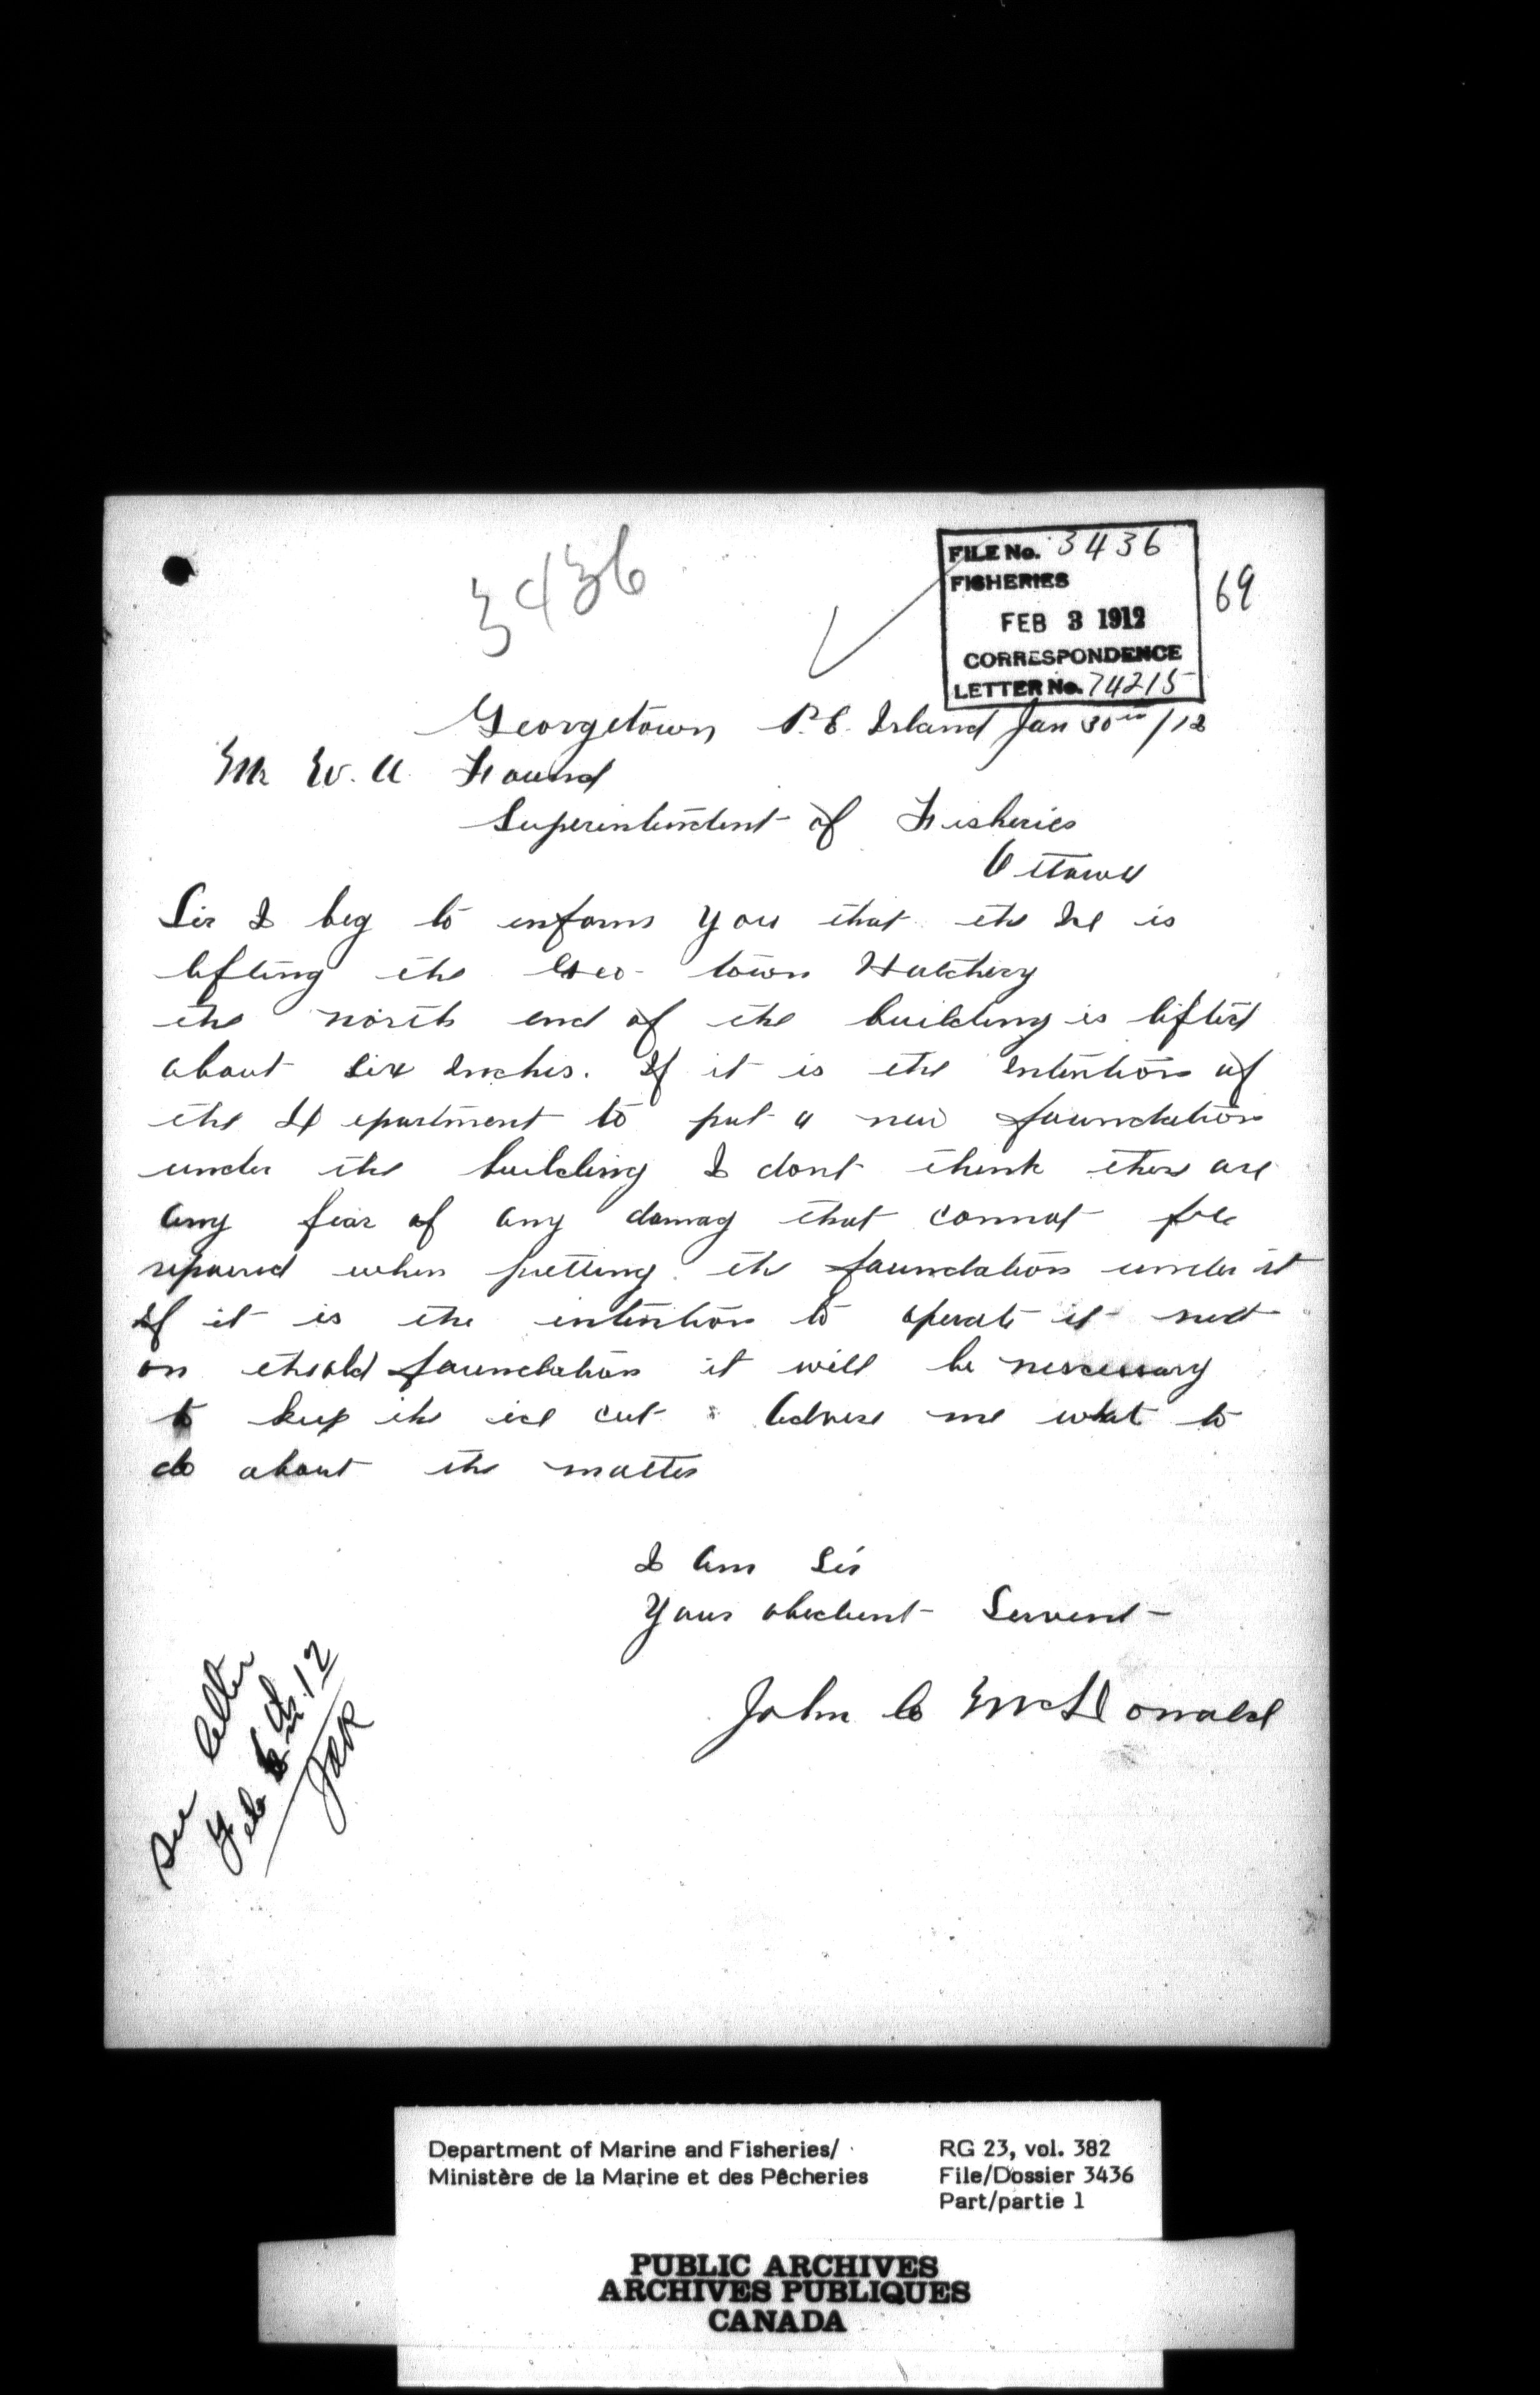 3436
FILE No. 3436
FISHERIES
FEB 3 1912
CORRESPONDENCE
LETTER No. 74215
69
Georgetown P.E. Island Jan 30th /12
Mr W. A Found
Superintendent of Fisheries
Ottawa
Sir I beg to inform you that the Ice is
lifting the Geo-town Hatchery
the north end of the building is lifted
about six Inches. If it is the Intention of
the Department to put a new foundation
under the building I dont think there are
any fear of any damag that connot be
repaired when putting the foundation under it
If it is the intention to operate it next
on the old foundation it will be nescessary
to keep the ice cut. Advise me what to
do about the matter
I Am Sir
Your obedient Servent
John C McDonald
See letter
Feb 12
JAR
Department of Marine and Fisheries/
Ministère de la Marine et des Pêcheries
RG 23, vol. 382
File/Dossier 3436
Part/partie 1
PUBLIC ARCHIVES
ARCHIVES PUBLIQUES
CANADA